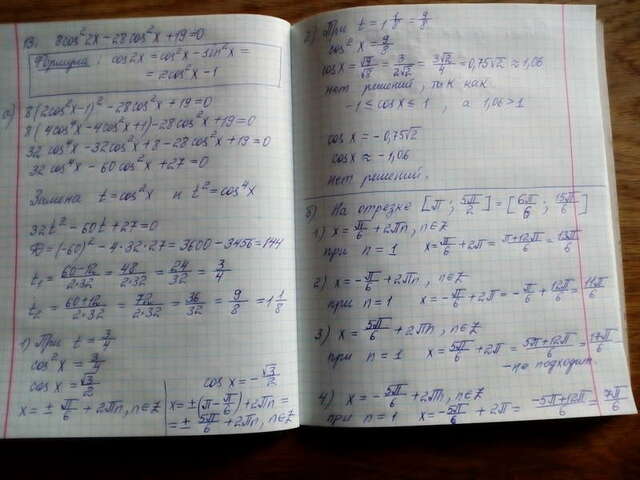 13. 8cos²2x-28cos²x+19=0
Формула: cos2x=cos²x-sin²x=
=2cos²x-1
а) 8(2cos²x-1)²-28cos²x+19=0
8(4cos⁴x-4cos²x+1)-28cos²x+19=0
32cos⁴x-32cos²x+8-28cos²x+19=0
32cos⁴x-60cos²x+27=0
Замена t=cos²x и t²=cos⁴x
32t²-60t+27=0
D=(-60)²-4·32·27=3600-3456=144
t₁=(60-12)/(2·32)=48/(2·32)=24/32=3/4
t₂=(60+12)/(2·32)=72/(2·32)=36/32=9/8=1 1/8
1) При t=3/4
cos²x=3/4
cosx=√3/2
x=±π/6+2πn, n∈Z
cosx=-√3/2
x=±(π-π/6)+2πn=
=±5π/6+2πn, n∈Z
2) При t=1 1/8=9/8
cos²x=9/8
cosx=√9/√8=3/2√2=3√2/4=0,75√2≈1,06
нет решений, так как
-1≤cosx≤1, а 1,06>1
cosx=-0,75√2
cosx≈-1,06
нет решений.
б) На отрезке [π; 5π/2]=[6π/6; 15π/6]
1) x=π/6+2πn, n∈Z
при n=1 x=π/6+2π=(π+12π)/6=13π/6
2) x=-π/6+2πn, n∈Z
при n=1 x=-π/6+2π=-π/6+12π/6=11π/6
3) x=5π/6+2πn, n∈Z
при n=1 x=5π/6+2π=(5π+12π)/6=17π/6
-не подходит.
4) x=-5π/6+2πn, n∈Z
при n=1 x=-5π/6+2π=(-5π+12π)/6=7π/6